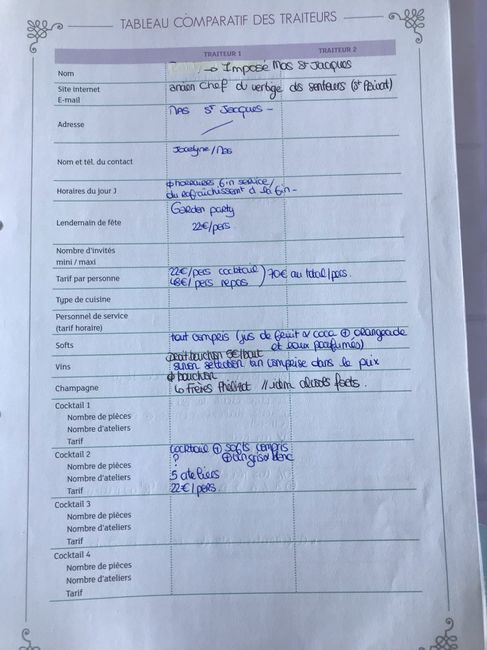 TABLEAU COMPARATIF DES TRAITEURS
TRAITEUR 1 TRAITEUR 2
Nom → Imposé Mas St Jacques
Site Internet ancien chef du vertige des senteurs (St Privat)
E-mail
Adresse Mas St Jacques -
Nom et tél. du contact Jocelyne / Mas
Horaires du jour J horaires fin service /
du rafraichissement à la fin -
Lendemain de fête Garden party
22€/pers
Nombre d'invités
mini / maxi
Tarif par personne 22€/pers cocktail ) 70€ au total/pers.
48€/pers repas
Type de cuisine
Personnel de service
(tarif horaire)
Softs tout compris (jus de fruit ou coca ⊕ orangeade
et eaux parfumés)
Vins droit bouchon 5€/bout
sinon selection comprise dans le prix
Champagne bouchon
↳ Frères // idem
Cocktail 1
Nombre de pièces
Nombre d'ateliers
Tarif
Cocktail 2 cocktail ⊕ softs compris
Nombre de pièces ?
Nombre d'ateliers 5 ateliers
Tarif 22€/pers.
Cocktail 3
Nombre de pièces
Nombre d'ateliers
Tarif
Cocktail 4
Nombre de pièces
Nombre d'ateliers
Tarif